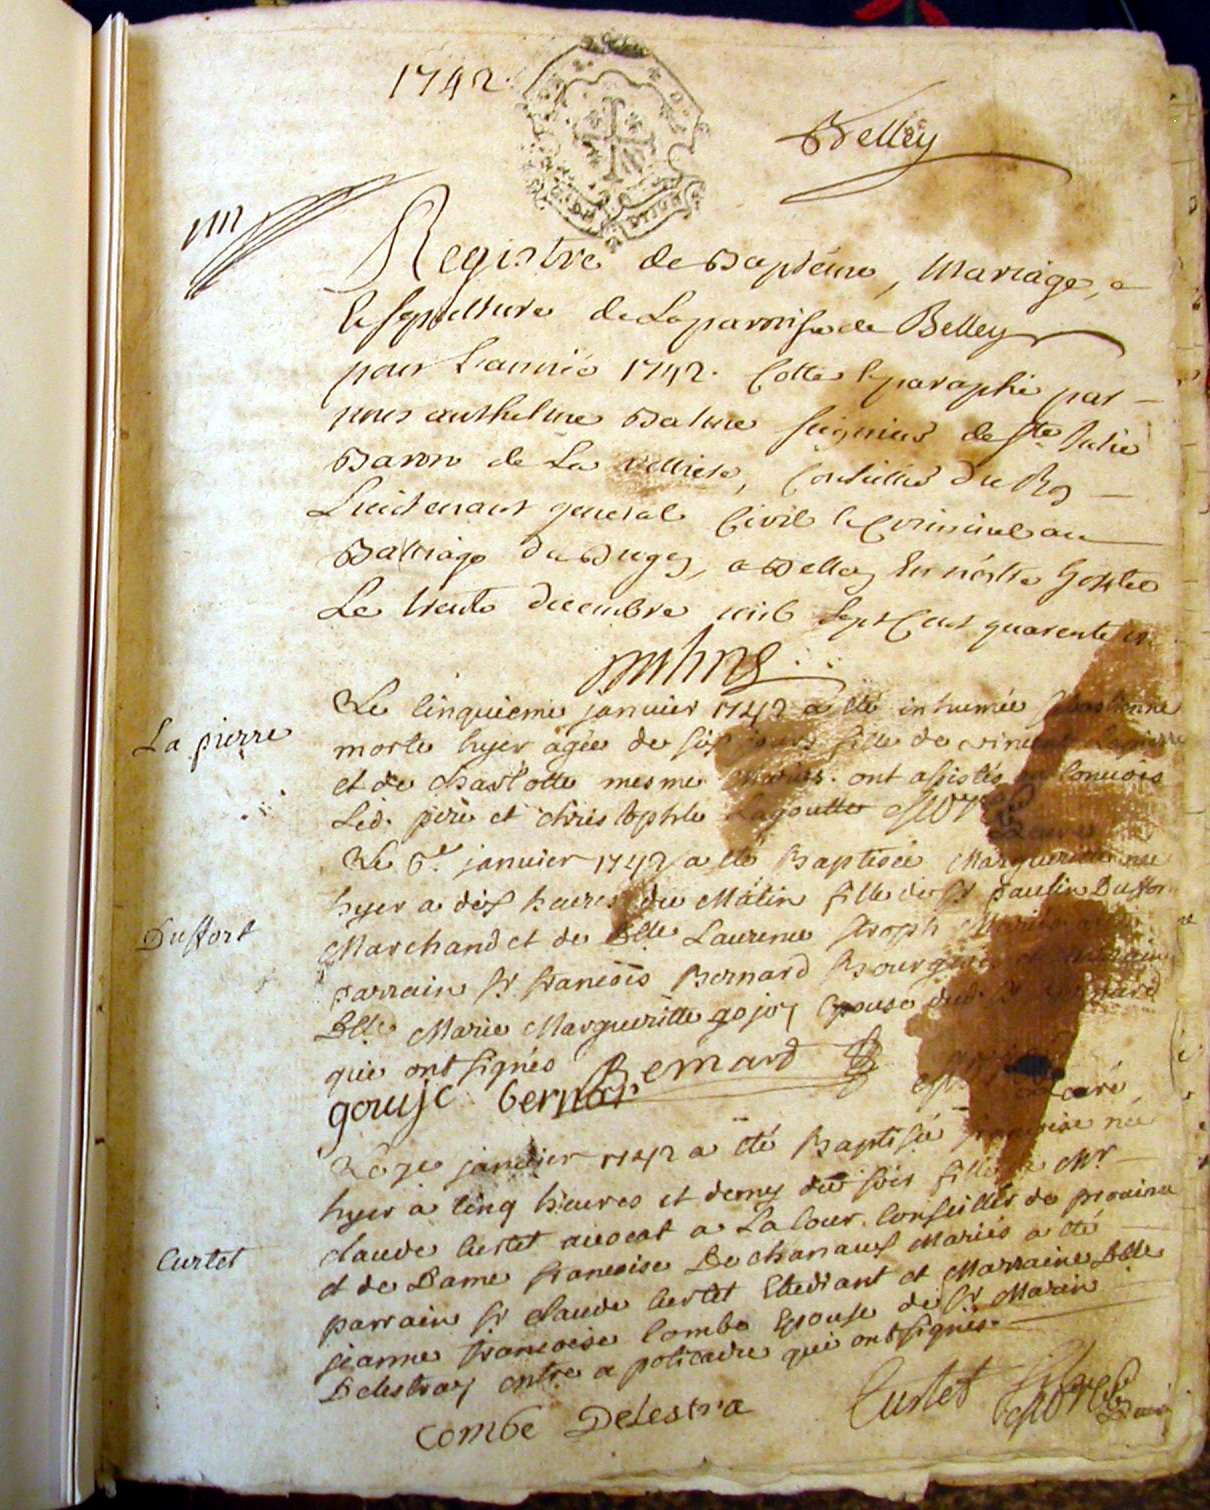 1742.
Belley
Registre de Baptéme, Mariage, e
Sepulture de La paroisse de Belley
pour L'année 1742. Cotté e paraphé par
nous anthelme Balme seigneur de Ste Julie
Baron de La, Conseiller du Roy
Lieutenant general Civil e Criminel au
Bailliage du Bugey, a Belley En nôstre hostel
Le trente decembre mil sept Cent quarente
Le cinquieme janvier 1742 a été inhumée
La pierre
morte hyer agée de six jours fille de vincent Lapierre
et de charlotte mesme mariés. ont assistés au convois
Led. pere et christophle Lagoutte
Le 6e janvier 1742 a été Baptisée Margueritte née
hyer a dix heures du Matin fille de Sr paulin Duffort
Duffort
Marchand et de Dlle Laurence Mariés
parrain Sr françois Bernard Bourgeois et marraine
Dlle Marie Margueritte gojoz Epouse dud. Sr Bernard
qui ont signés Bernard
goujc bernar
Curé
Le 7e janvier 1742 a été Baptisée françoise née
hyer a cinq heures et demy du soir fille de Mr
Curtet
claude Curtet avocat a La Cour. Conseiller de province
et de Dame françoise De chanaux Mariés a été
parrain Sr claude Curtet Etudiant et Marraine Dlle
jeanne françoise Combe Epouse de Sr Marin
Delestraz apoticaire qui ont signés.
Combe Delestra
Curtet